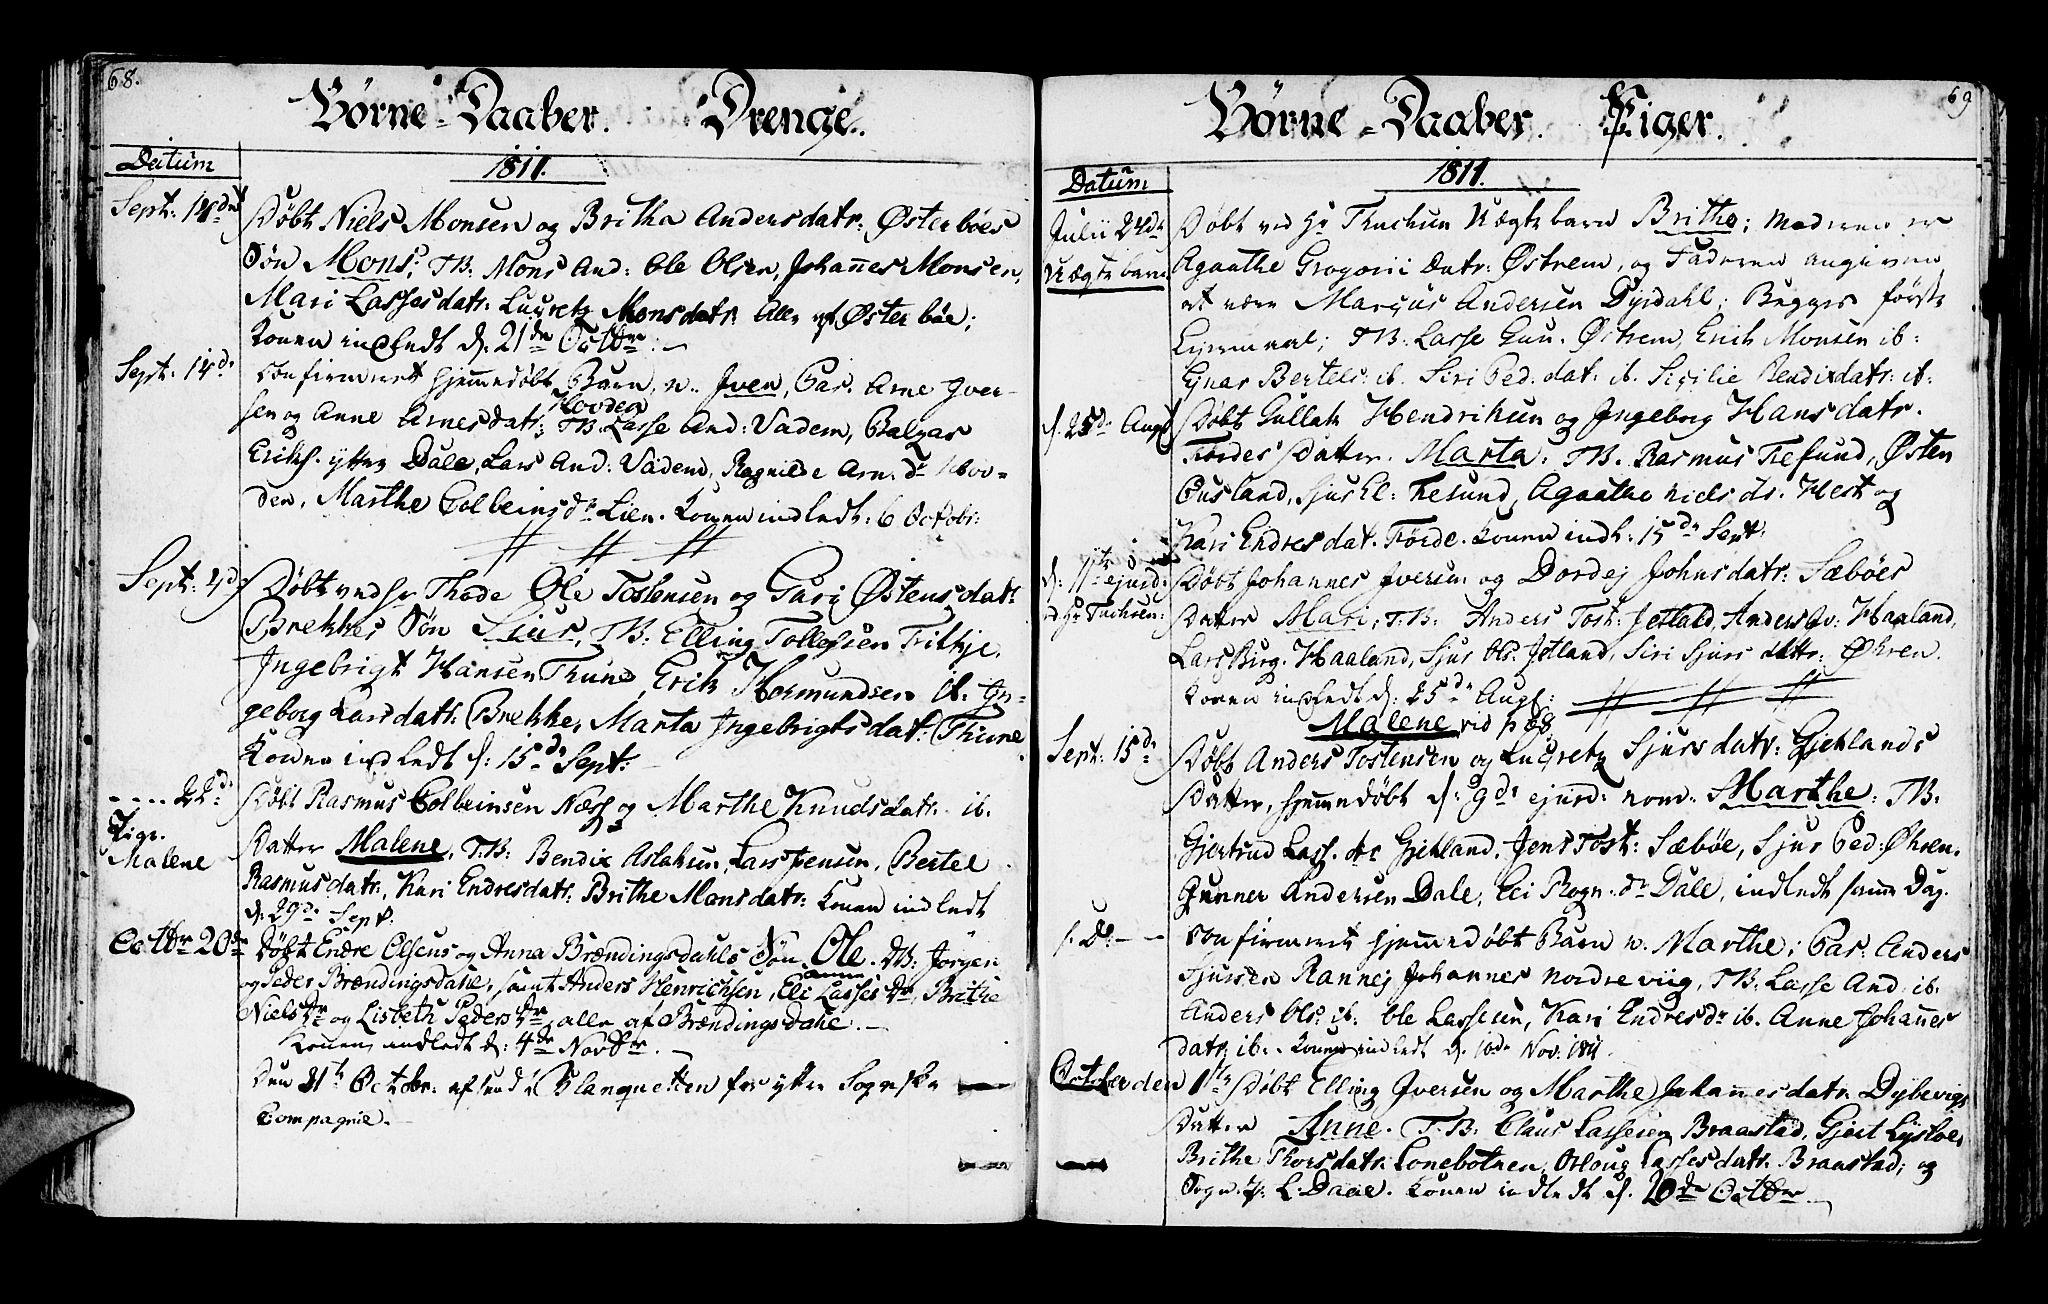 68.
Børne-Daaber. Drenge.
Datum
1811.
Sept: 14de Døbt Niels Monsen og Britha Andersdatr: Østerbøes
Søn Mons, TB: Mons And: Ole Olsen, Johañes Monsen,
Mari Lassesdatr: Lucretz Monsdatr: Alle af Østerbøe;
Konen indledt d: 21de Octbr:
Sept: 14de confirmeret hjemmedøbt Barn, n. Iven, Par. Arne Iver-
sen og Anne Arnesdatr: Hovden TB: Lasse And: Vadem, Balzar
Eriks. ytter Dale, Lars And: Vadem, Ragnilde Arn. dr Hov-
den, Marthe Colbeinsdr Lien. Konen indledt: 6 Octobr:
Sept: 4d: Døbt ved Hr Thode Ole Tostensen og Guri Østensdatr:
Brekkes Søn Sjur, TB: Elling Tollefsen Fritkje,
Ingebrigt Hansen Thune, Erik Hermundsen ib. In-
geborg Larsdatr: Brekke, Marta Ingebrigtsdat: Thune
Konen indledt d: 15de Sept:
---- 22d: Døbt Rasmus Colbeinsen Næss og Marthe Knudsdatr: ib.
Pige.
Malene
Datter Malene, TB: Bendix Aslaksen, Lars Jensen, Bertel
Rasmusdatr, Kari Endresdatr: Brithe Monsdatr: Konen indledt
d: 29de Sept.
Octbr 20de Døbt Endre Olsens og Anna Brændingsdahls Søn Ole. TB: Jörgen
og Peder Brændingsdahl, samt Anders Henrichsen, Eli Lasses Dr, Brithe
Niels Dr og Lisbeth Peders Dr, alle af Brændingsdahl.
Konen indledt d: 4de Novbr.
Den 31te Octobr: afsendt Blanquetten for yttre Sognske
Compagnie.
69
Børne-Daaber. Piger.
Datum
1811.
Julii 24de Døbt ved Hr Tuchsen Uægte barn Brithe; Moderen er
Uægte barn Agaathe Gregorii Datr: Østrem, og Faderen angiven
at være Marcus Andersen Dysdahl; Begges første
Leiermaal; TB: Lasse Gun. Østrem, Erich Monsen ib:
Gynar Bertels: ib. Siri Ped: dat: ib. Sicilie Bendixdatr: ib:
d. 25de Augt Døbt Gullak Hendriksen og Ingeborg Hansdatr.
Førdes Datter. Marta. TB. Rasmus Tresund, Østen
Ousland, Sjus El: Tresund, Agaathe Niels dr. Hest og
Kari Endresdat. Førde. Konen indl: 15de Sept:
d: 11te ejusd: Døbt Johannes Iversen og Dordej Johnsdatr: Sæbøes
ved Hr Tuchsen: Datter Mari, TB. Anders Tost: Jetland, Anders Av: Haaland,
Lars Birg. Haaland, Sjur Ols. Jetland, Siri Sjurs dattr: Øhren.
Konen indledt d: 25de Aug:
Malene vid p. 68
Sept: 15de Døbt Anders Tostensen og Lucretz Sjursdatr: Gjeklands
Datter, hjemmedøbt d: 9de ejusd: nom: Marthe: TB.
Gjertrud Lass. dr Gjekland, Jens Tost: Sæbøe, Sjur Ped: Øhren.
Gunner Andersen Dale, Eli Rogn. dr Dale, indledt samme Dag.
d. Do - - confirmeret hjemmedøbt Barn n: Marthe; Par: Anders
Sjursen Rannej Johannes Nordreviig, TB. Lasse And: ib.
Anders Ols: ib: Ole Lassesen, Kari Endresdr ib. Anne Johañes
datr: ib. Konen indledt d. 10de Nov: 1811.
October den 1ste Døbt Elling Iversen og Marthe Johannesdatr: Dybevigs
Datter Anne. TB. Claus Lassesen Braastad, Gjert
Brithe Thorsdatr: Lonebotnen, Oloug Lassesdatr: Braastad; og
Sogn.pr. L: Daae. Konen indledt d. 20de Octbr.